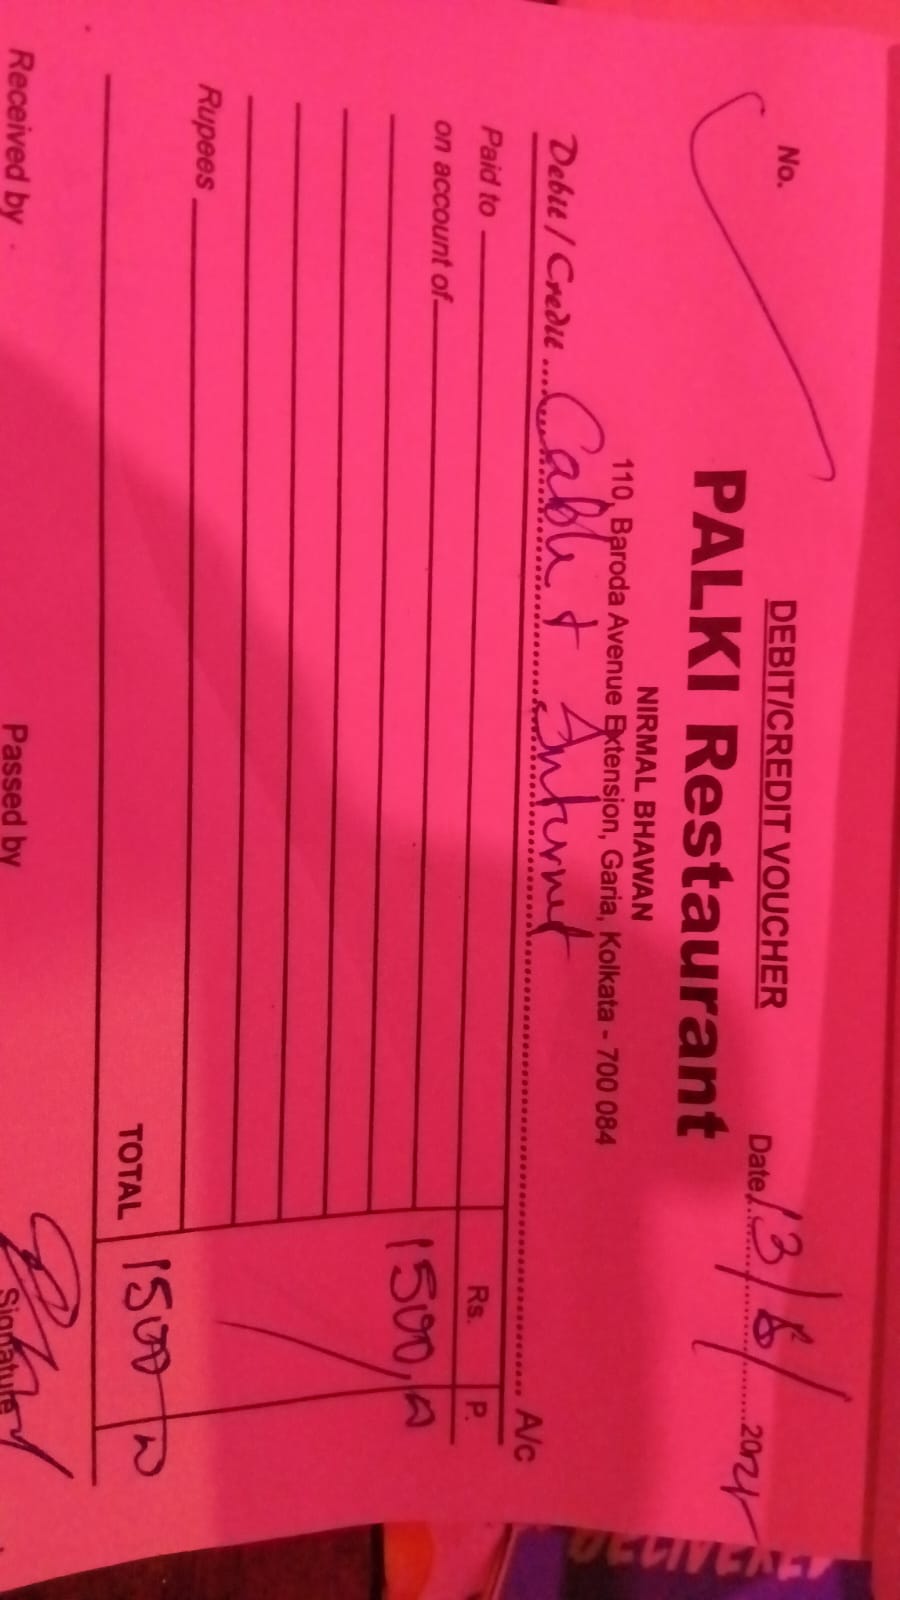 DEBIT/CREDIT VOUCHER
No.
Date 13/8/2024
PALKI Restaurant
NIRMAL BHAWAN
110, Baroda Avenue Extension, Garia, Kolkata - 700 084
Debit / Credit Cable + Internet A/c
Paid to Rs. P.
on account of 1500,00
Rupees
TOTAL 1500 00
Received by Passed by Signature
DELIVERED